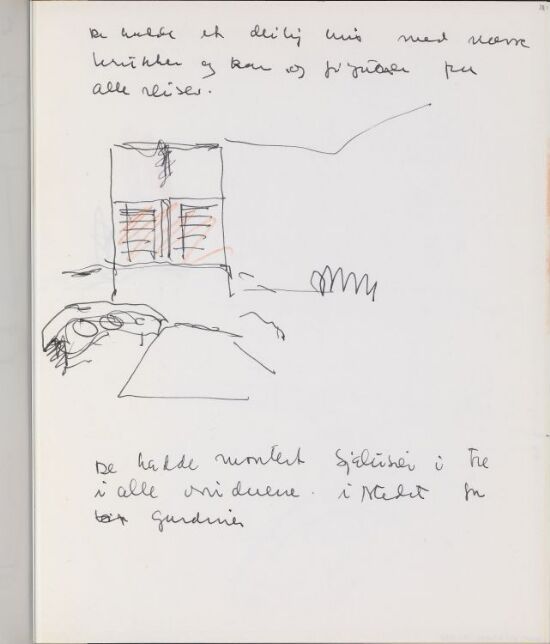 De hadde et deilig hus med
krukker og kar og figurer fra
alle reiser.
De hadde montert Sjalusier i tre
i alle vinduene. i stedet for
gardiner